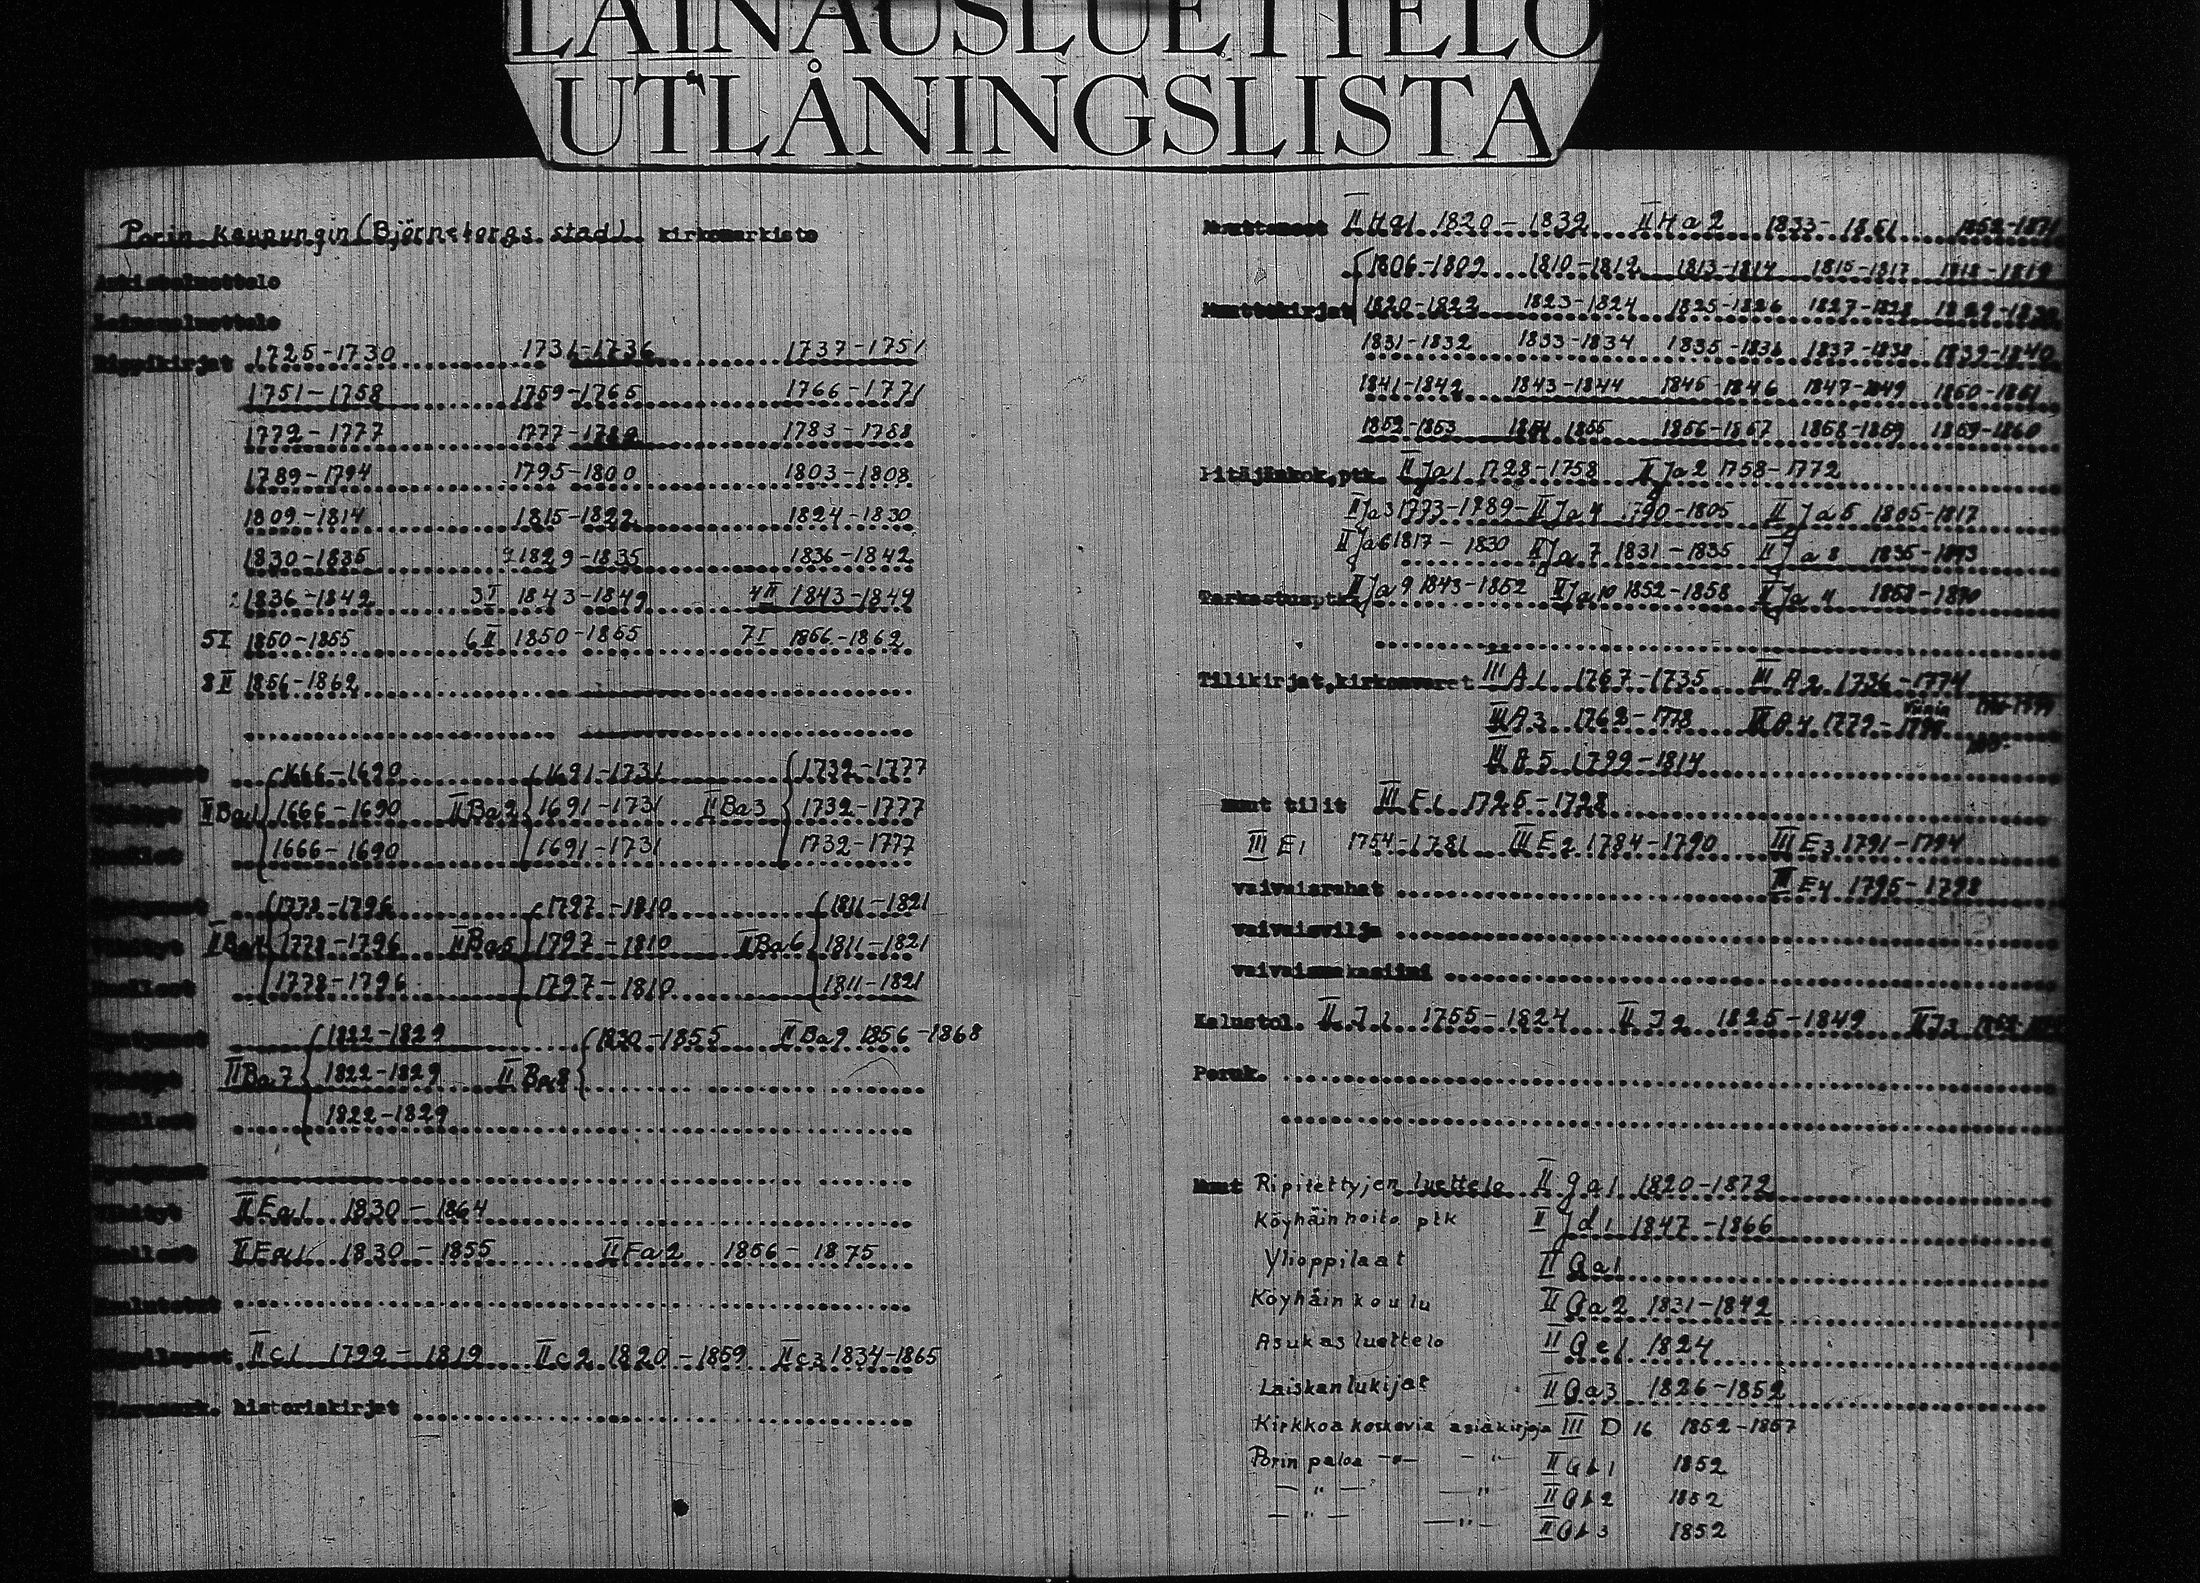 LAINAUSLUETTELO
UTLÅNINGSLISTA
Porin Kaupungin (Björneborgs stad) kirkonarkisto
Arkistoluettelo
Lainausluettelo
Rippikirjat 1725-1730 1731-1736 1737-1751
1751-1758 1759-1765 1766-1771
1772-1777 1777-1782 1783-1788
1789-1794 1795-1800 1803-1808
1809-1814 1815-1822 1824-1830
1830-1835 1829-1835 1836-1842
2 1836-1842 3I 1843-1849 4II 1843-1849
5I 1850-1855 6II 1850-1855 7I 1856-1862
8II 1856-1862
Syntyneet 1666-1690 1691-1731 1732-1777
Vihityt II Ba1 1666-1690 II Ba2 1691-1731 II Ba3 1732-1777
Kuolleet 1666-1690 1691-1731 1732-1777
Syntyneet 1778-1796 1797-1810 1811-1821
Vihityt II Ba4 1778-1796 II Ba5 1797-1810 II Ba6 1811-1821
Kuolleet 1778-1796 1797-1810 1811-1821
Syntyneet 1822-1829 1830-1855 II Ba9 1856-1868
Vihityt II Ba7 1822-1829 II Ba8
Kuolleet 1822-1829
Syntyneet
Vihityt II Ea1 1830-1864
Kuolleet II Fa1 1830-1855 II Fa2 1856-1875
Kuulutetut
Rippilapset II c1 1799-1819 II c2 1820-1859 II c3 1834-1865
historiakirjat
Muuttaneet II Ha1 1820-1832 II Ha2 1833-1851 1852-1871
1806-1809 1810-1812 1813-1814 1815-1817 1818-1819
Muuttokirjat 1820-1822 1823-1824 1825-1826 1827-1828 1829-1830
1831-1832 1833-1834 1835-1836 1837-1838 1839-1840
1841-1842 1843-1844 1845-1846 1847-1849 1850-1851
1852-1853 1854 1855 1856-1857 1858-1859 1859-1860
Pitäjänkok.ptk. II Ja1 1728-1758 II Ja2 1758-1772
II Ja3 1773-1789 II Ja4 1790-1805 II Ja5 1805-1817
II Ja6 1817-1830 II Ja7 1831-1835 II Ja8 1835-1843
Tarkastusptk. II Ja9 1843-1852 II Ja10 1852-1858 II Ja11
Tilikirjat, kirkonvarat III A1 1767-1735 III A2 1736-1774
III A3 1768-1778 III A4 1779-
III A5 1799-1814
muut tilit III E1 1725-1728
III E1 1754-1781 III E2 1784-1790 III E3 1791-1794
vaivaisrahat III E4 1795-1798
vaivaisvilja
vaivaismakasiini
Kalustol. II J1 1755-1824 II J2 1825-1849 II J3
Peruk.
Muut Ripitettyjen luettelo II Ja1 1820-1872
Köyhäinhoito ptk II Jd1 1847-1866
Ylioppilaat II Ga1
Köyhäin koulu II Ga2 1831-1842
Asukasluettelo II Ge1 1824
Laiskanlukijat II Ga3 1826-1852
Kirkkoa koskevia asiakirjoja III D 16 1852-1857
Porin paloa -"- -"- II Gb1 1852
-"- -"- II Gb2 1852
-"- -"- II Gb3 1852